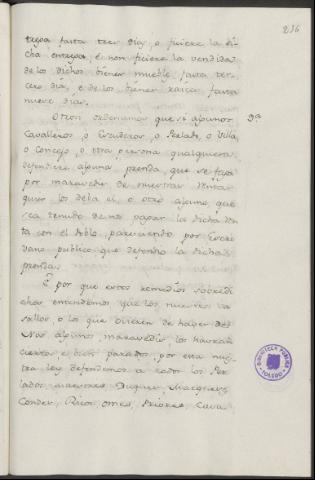 236
trega fasta tres dias, o ficiere la di-
cha entrega, é non ficiere la vendida
de los dichos bienes muebles fasta ter-
cero dia, e de los bienes raices fasta
nueve dias.
Otrosi ordenamos que si algunos 9ª
Cavalleros, o Escuderos, o Perlado, o Villa,
o Concejo, o otra persona qualquiera
defendiere alguna prenda, que se faga
por maravedis de nuestras Rentas
quier los deba el, o otro alguno que
sea tenudo de nos pagar la dicha deb-
da con el doblo, paresciendo por Escri-
vano publico que defendio la dicha
prenda.
E por que estos remedios sobredi-
chos entendemos que los nuestros va-
sallos, o los que ovieren de haver de
Nos algunos maravedis, los havran
ciertos, e bien parados, por esta nues-
tra ley defendemos a todos los Per-
lados, maestres, Duques, Marqueses,
Condes, Ricos omes, Priores, Cava-
BIBLIOTECA PUBLICA
TOLEDO